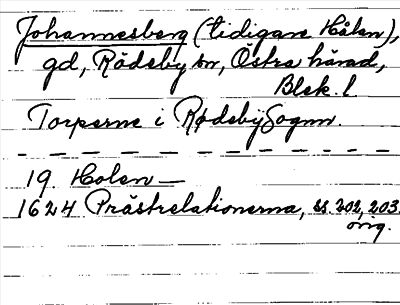 Johannesberg (tidigare Hålen),
gd, Rödeby sn, Östra härad,
Blek. l.
Torperne i Rødeby Sognn.
19 Holen —
1624 Prästrelationerna, ss. 202, 203.
orig.